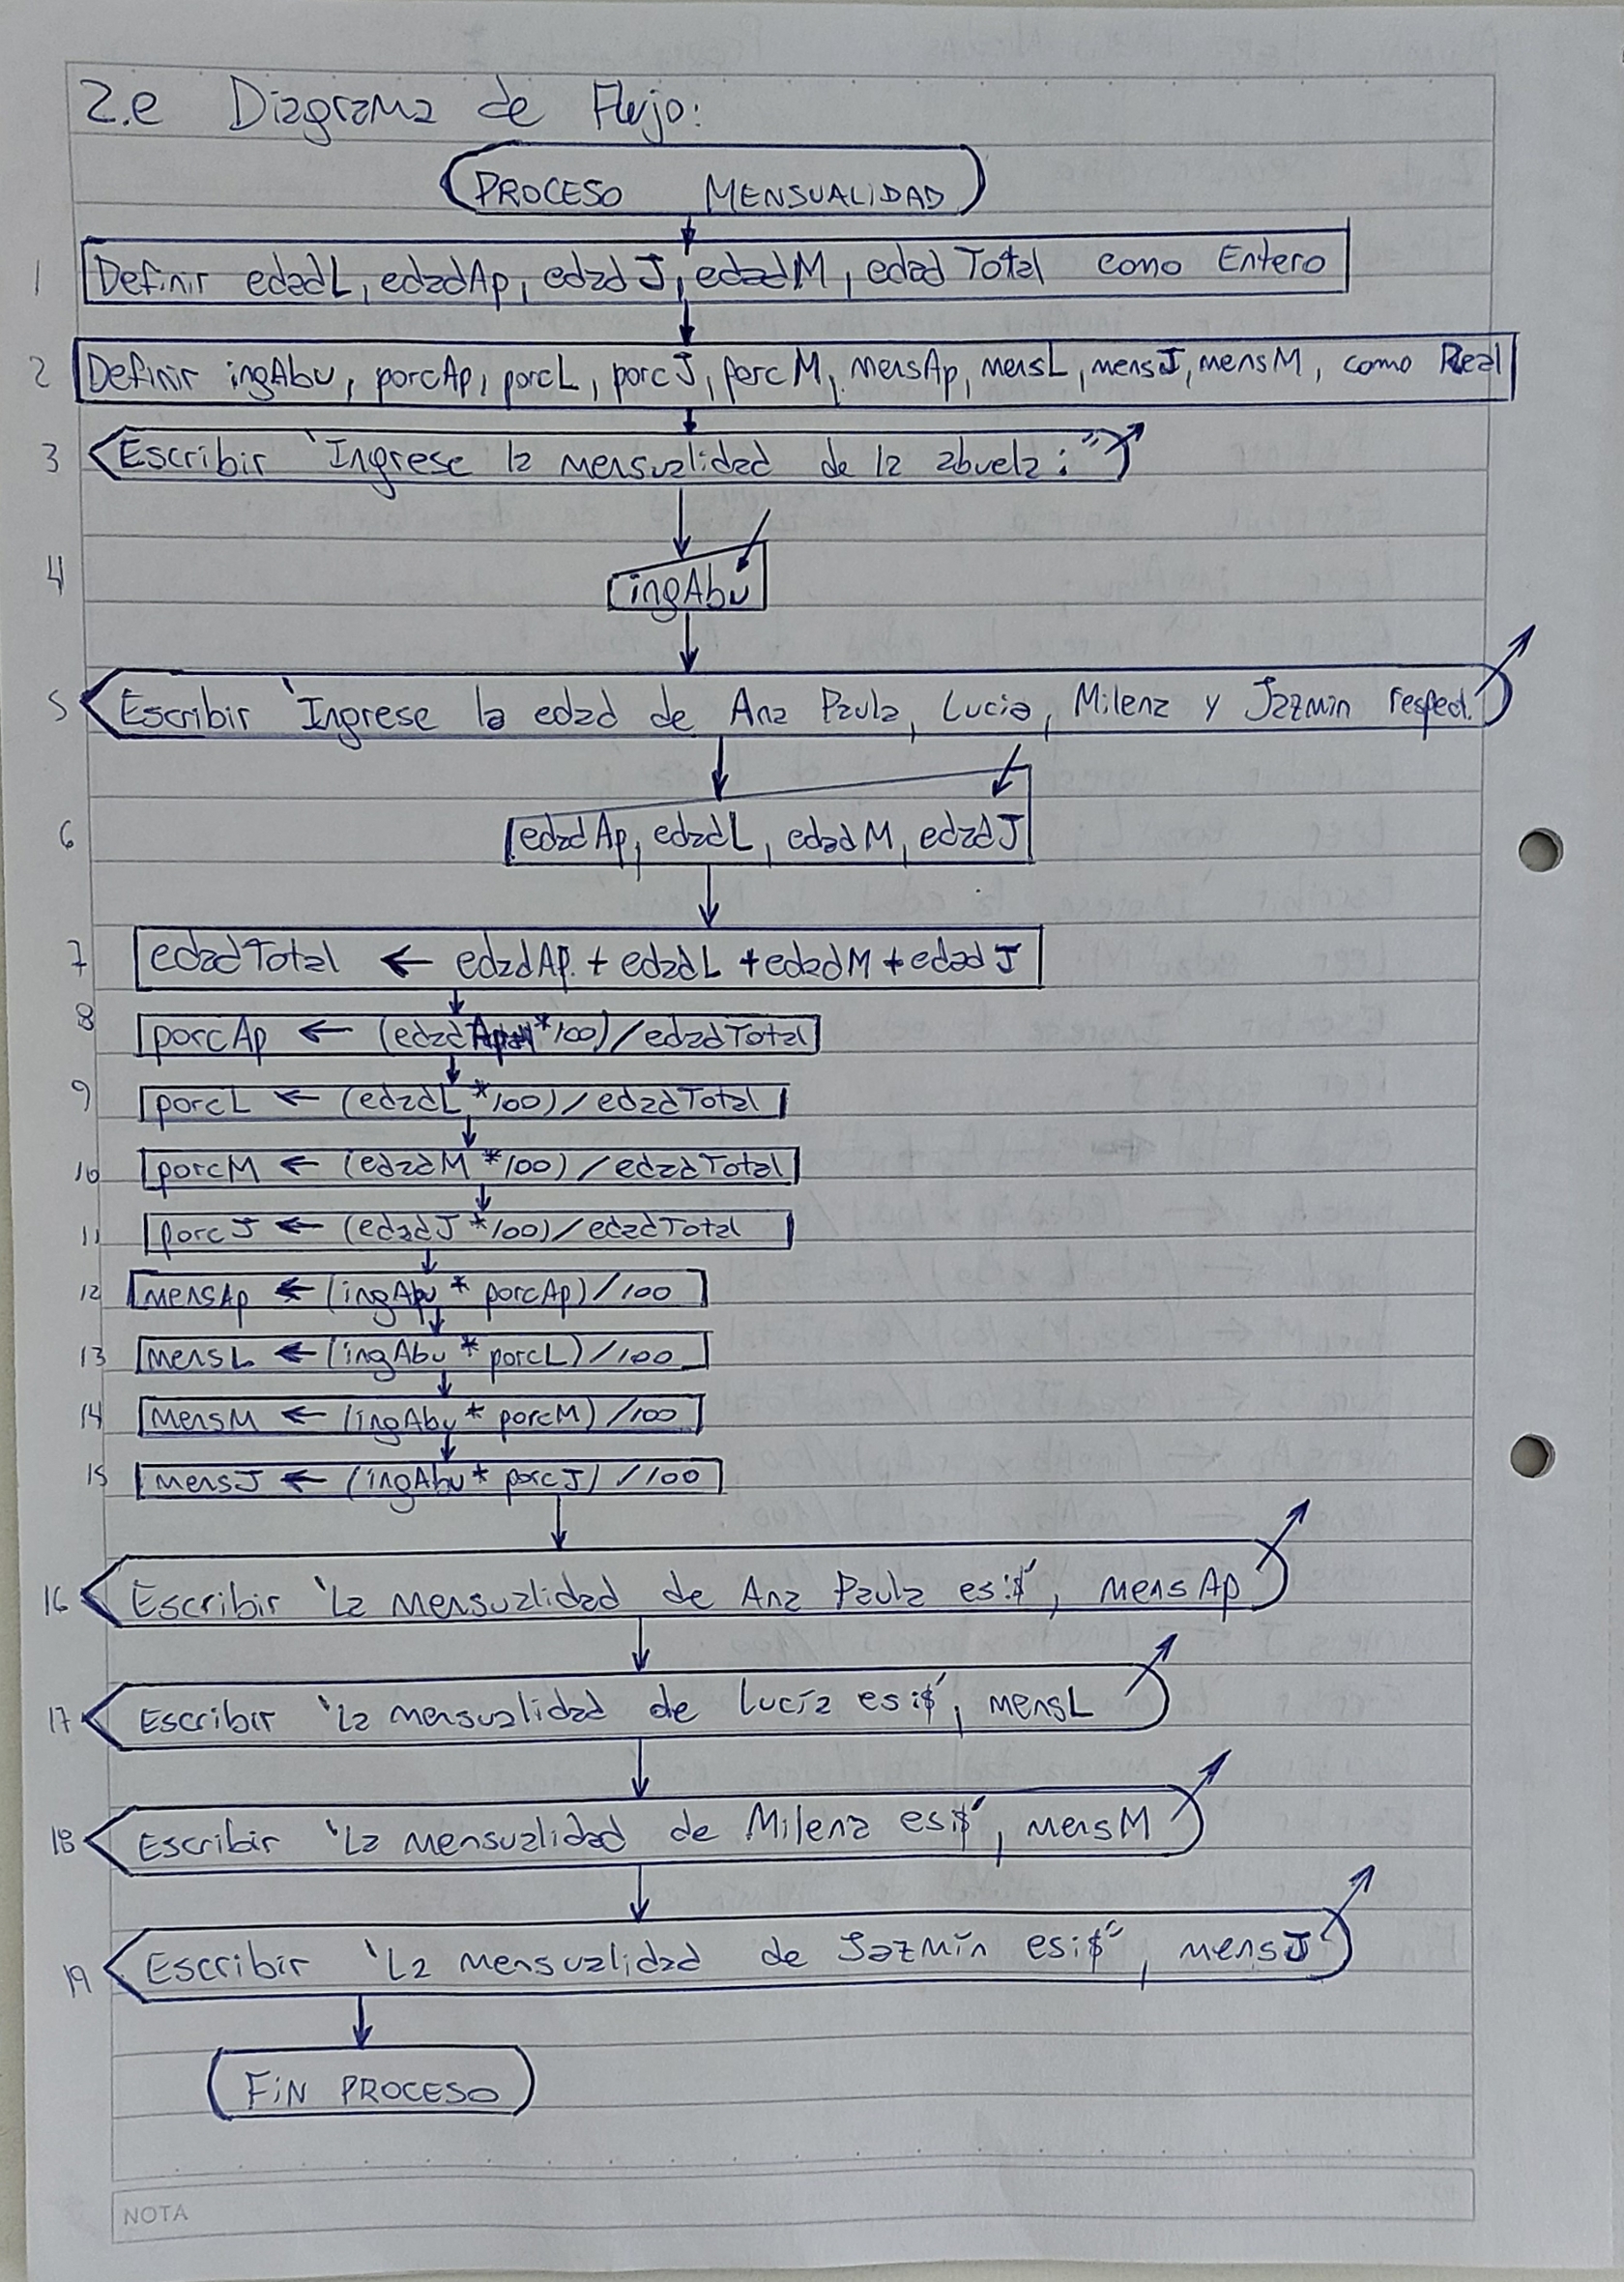 2.e Diagrama de Flujo:
PROCESO MENSUALIDAD
1 Definir edadL, edadAp, edadJ, edadM, edadTotal como Entero
2 Definir ingAbu, porcAp, porcL, porcJ, porcM, mensAp, mensL, mensJ, mensM, como Real
3 Escribir 'Ingrese la mensualidad de la abuela:"
4 ingAbu
5 Escribir 'Ingrese la edad de Ana Paula, Lucia, Milena y Jazmin respect.
6 edadAp, edadL, edadM, edadJ
7 edadTotal ← edadAp + edadL + edadM + edadJ
8 porcAp ← (edadAp*100)/edadTotal
9 porcL ← (edadL*100)/edadTotal
10 porcM ← (edadM*100)/edadTotal
11 porcJ ← (edadJ*100)/edadTotal
12 mensAp ← (ingAbu * porcAp)/100
13 mensL ← (ingAbu * porcL)/100
14 mensM ← (ingAbu * porcM)/100
15 mensJ ← (ingAbu * porcJ)/100
16 Escribir 'La mensualidad de Ana Paula es:$', mensAp
17 Escribir 'La mensualidad de Lucía es:$', mensL
18 Escribir 'La mensualidad de Milena es:$', mensM
19 Escribir 'La mensualidad de Jazmín es:$", mensJ
FIN PROCESO
NOTA